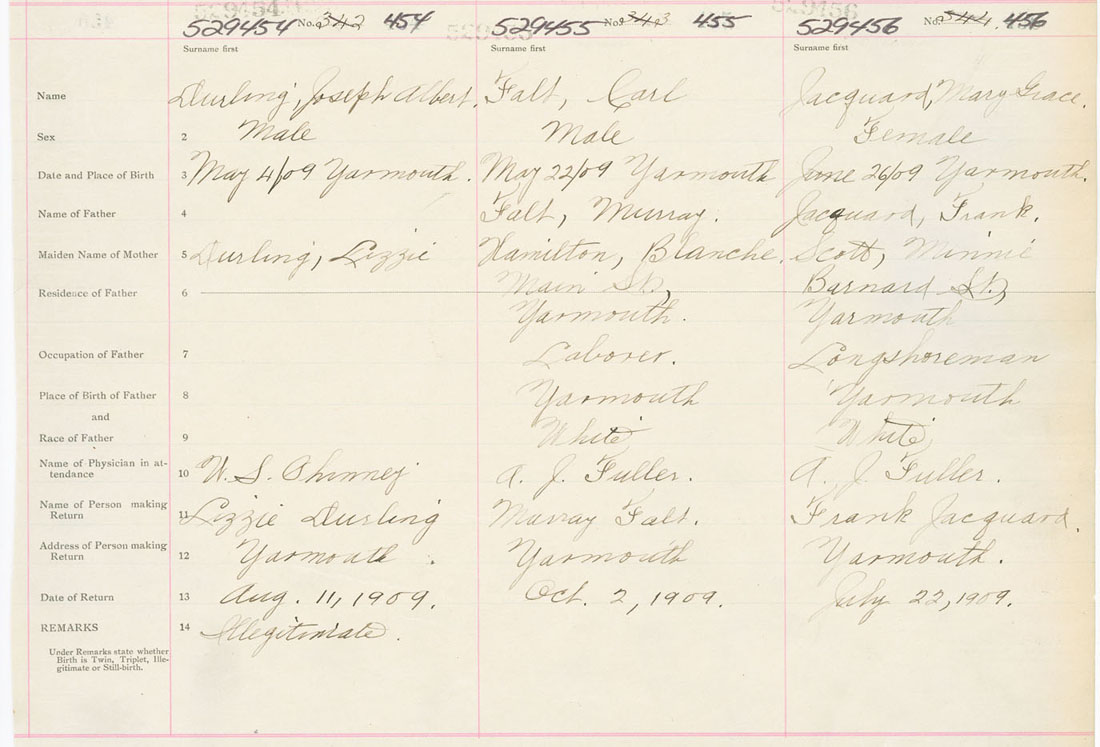 529454 No. 342 454 529455 No. 343 455 529456 No. 344 456
Surname first Surname first Surname first
Name Durling, Joseph Albert. Falt, Carl Jacquard, Mary Grace.
Sex 2 Male Male Female
Date and Place of Birth 3 May 4/09 Yarmouth. May 22/09 Yarmouth June 26/09 Yarmouth.
Name of Father 4 Falt, Murray. Jacquard, Frank.
Maiden Name of Mother 5 Durling, Lizzie Hamilton, Blanche. Scott, Minnie
Residence of Father 6 Main St, Barnard St,
Yarmouth. Yarmouth
Occupation of Father 7 Laborer. Longshoreman
Place of Birth of Father 8 Yarmouth Yarmouth
and
Race of Father 9 White White
Name of Physician in at-
tendance 10 W. S. Phinney A. J. Fuller. A. J. Fuller.
Name of Person making
Return 11 Lizzie Durling Murray Falt. Frank Jacquard.
Address of Person making
Return 12 Yarmouth. Yarmouth Yarmouth.
Date of Return 13 Aug. 11, 1909. Oct. 2, 1909. July 22, 1909.
REMARKS 14 Illegitimate.
Under Remarks state whether
Birth is Twin, Triplet, Ille-
gitimate or Still-birth.